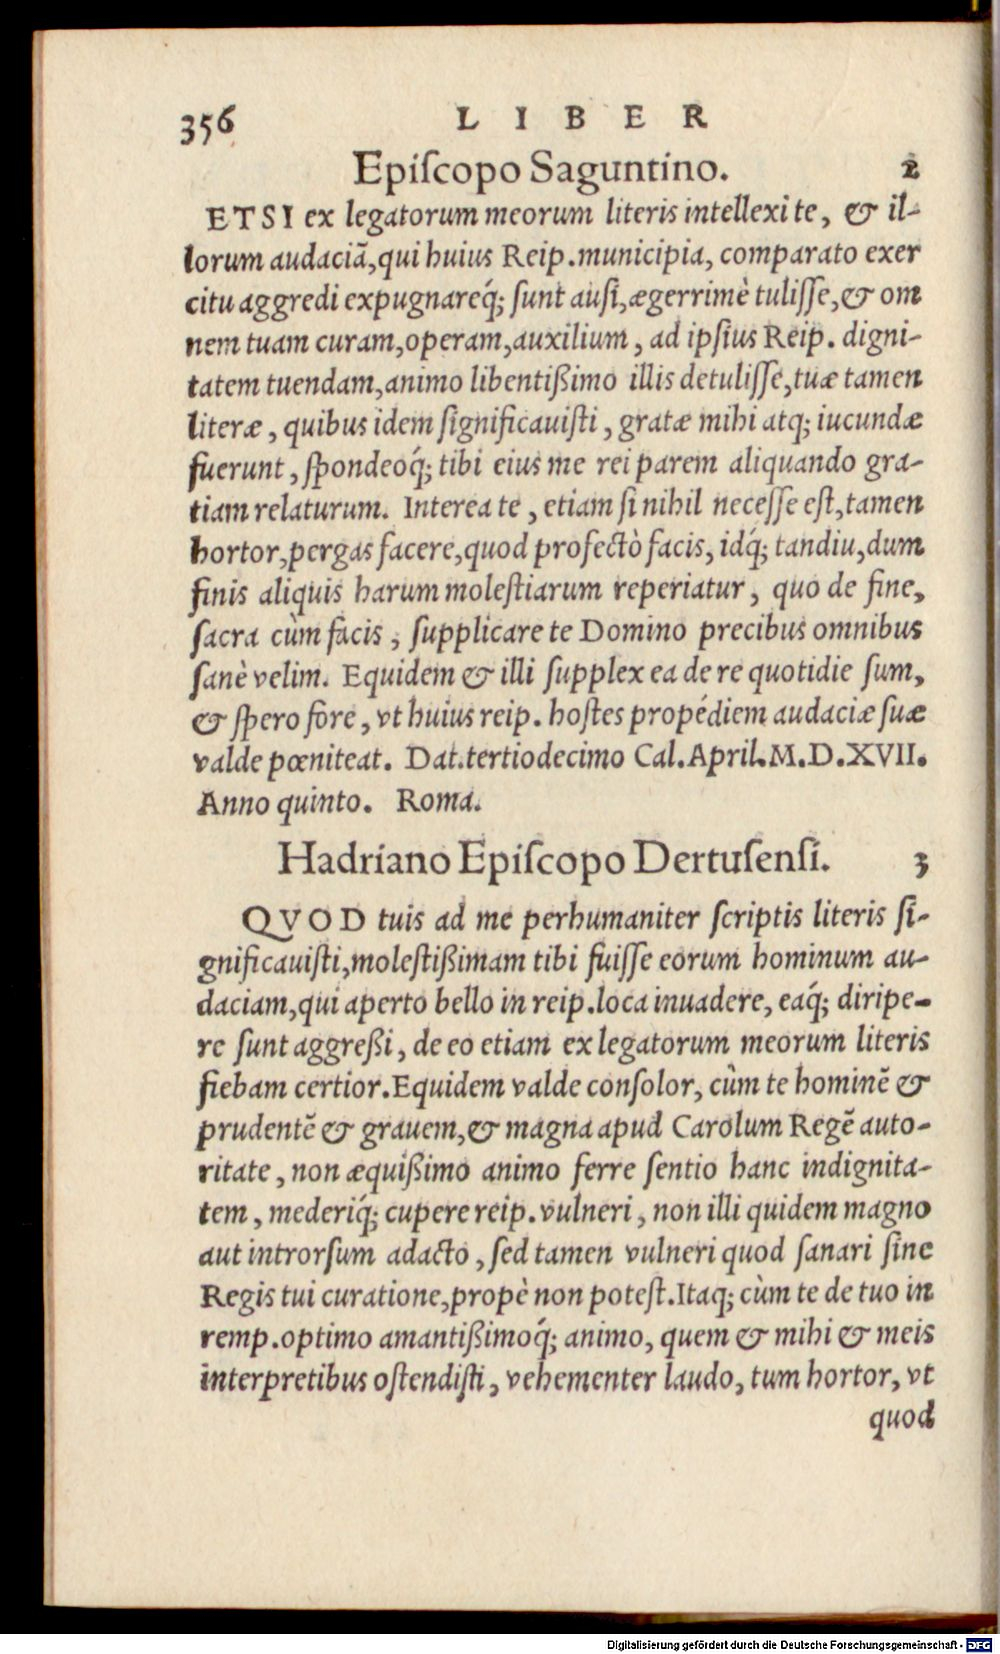 356 LIBER
Epiſcopo Saguntino. 2
ETSI ex legatorum meorum literis intellexi te, & il-
lorum audaciā, qui huius Reip. municipia, comparato exer
citu aggredi expugnareq́; ſunt auſi, ægerrimè tuliſſe, & om
nem tuam curam, operam, auxilium, ad ipſius Reip. digni-
tatem tuendam, animo libentißimo illis detuliſſe, tuæ tamen
literæ, quibus idem ſignificauiſti, gratæ mihi atq; iucundæ
fuerunt, ſpondeoq́; tibi eius me rei parem aliquando gra-
tiam relaturum. Interea te, etiam ſi nihil neceſſe eſt, tamen
hortor, pergas facere, quod profectò facis, idq́; tandiu, dum
finis aliquis harum moleſtiarum reperiatur, quo de fine,
ſacra cùm facis, ſupplicare te Domino precibus omnibus
ſanè velim. Equidem & illi ſupplex ea de re quotidie ſum,
& ſpero fore, vt huius reip. hoſtes propédiem audaciæ ſuæ
valde pœniteat. Dat. tertiodecimo Cal. April. M. D. XVII.
Anno quinto. Roma.
Hadriano Epiſcopo Dertuſenſi. 3
QVOD tuis ad me perhumaniter ſcriptis literis ſi-
gnificauiſti, moleſtißimam tibi fuiſſe eorum hominum au-
daciam, qui aperto bello in reip. loca inuadere, eaq́; diripe-
re ſunt aggreßi, de eo etiam ex legatorum meorum literis
fiebam certior. Equidem valde conſolor, cùm te hominē &
prudentē & grauem, & magna apud Carolum Regē auto-
ritate, non æquißimo animo ferre ſentio hanc indignita-
tem, mederiq́; cupere reip. vulneri, non illi quidem magno
aut introrſum adacto, ſed tamen vulneri quod ſanari ſine
Regis tui curatione, propè non poteſt. Itaq; cùm te de tuo in
remp. optimo amantißimoq́; animo, quem & mihi & meis
interpretibus oſtendiſti, vehementer laudo, tum hortor, vt
quod
Digitalisierung gefördert durch die Deutsche Forschungsgemeinschaft - DFG